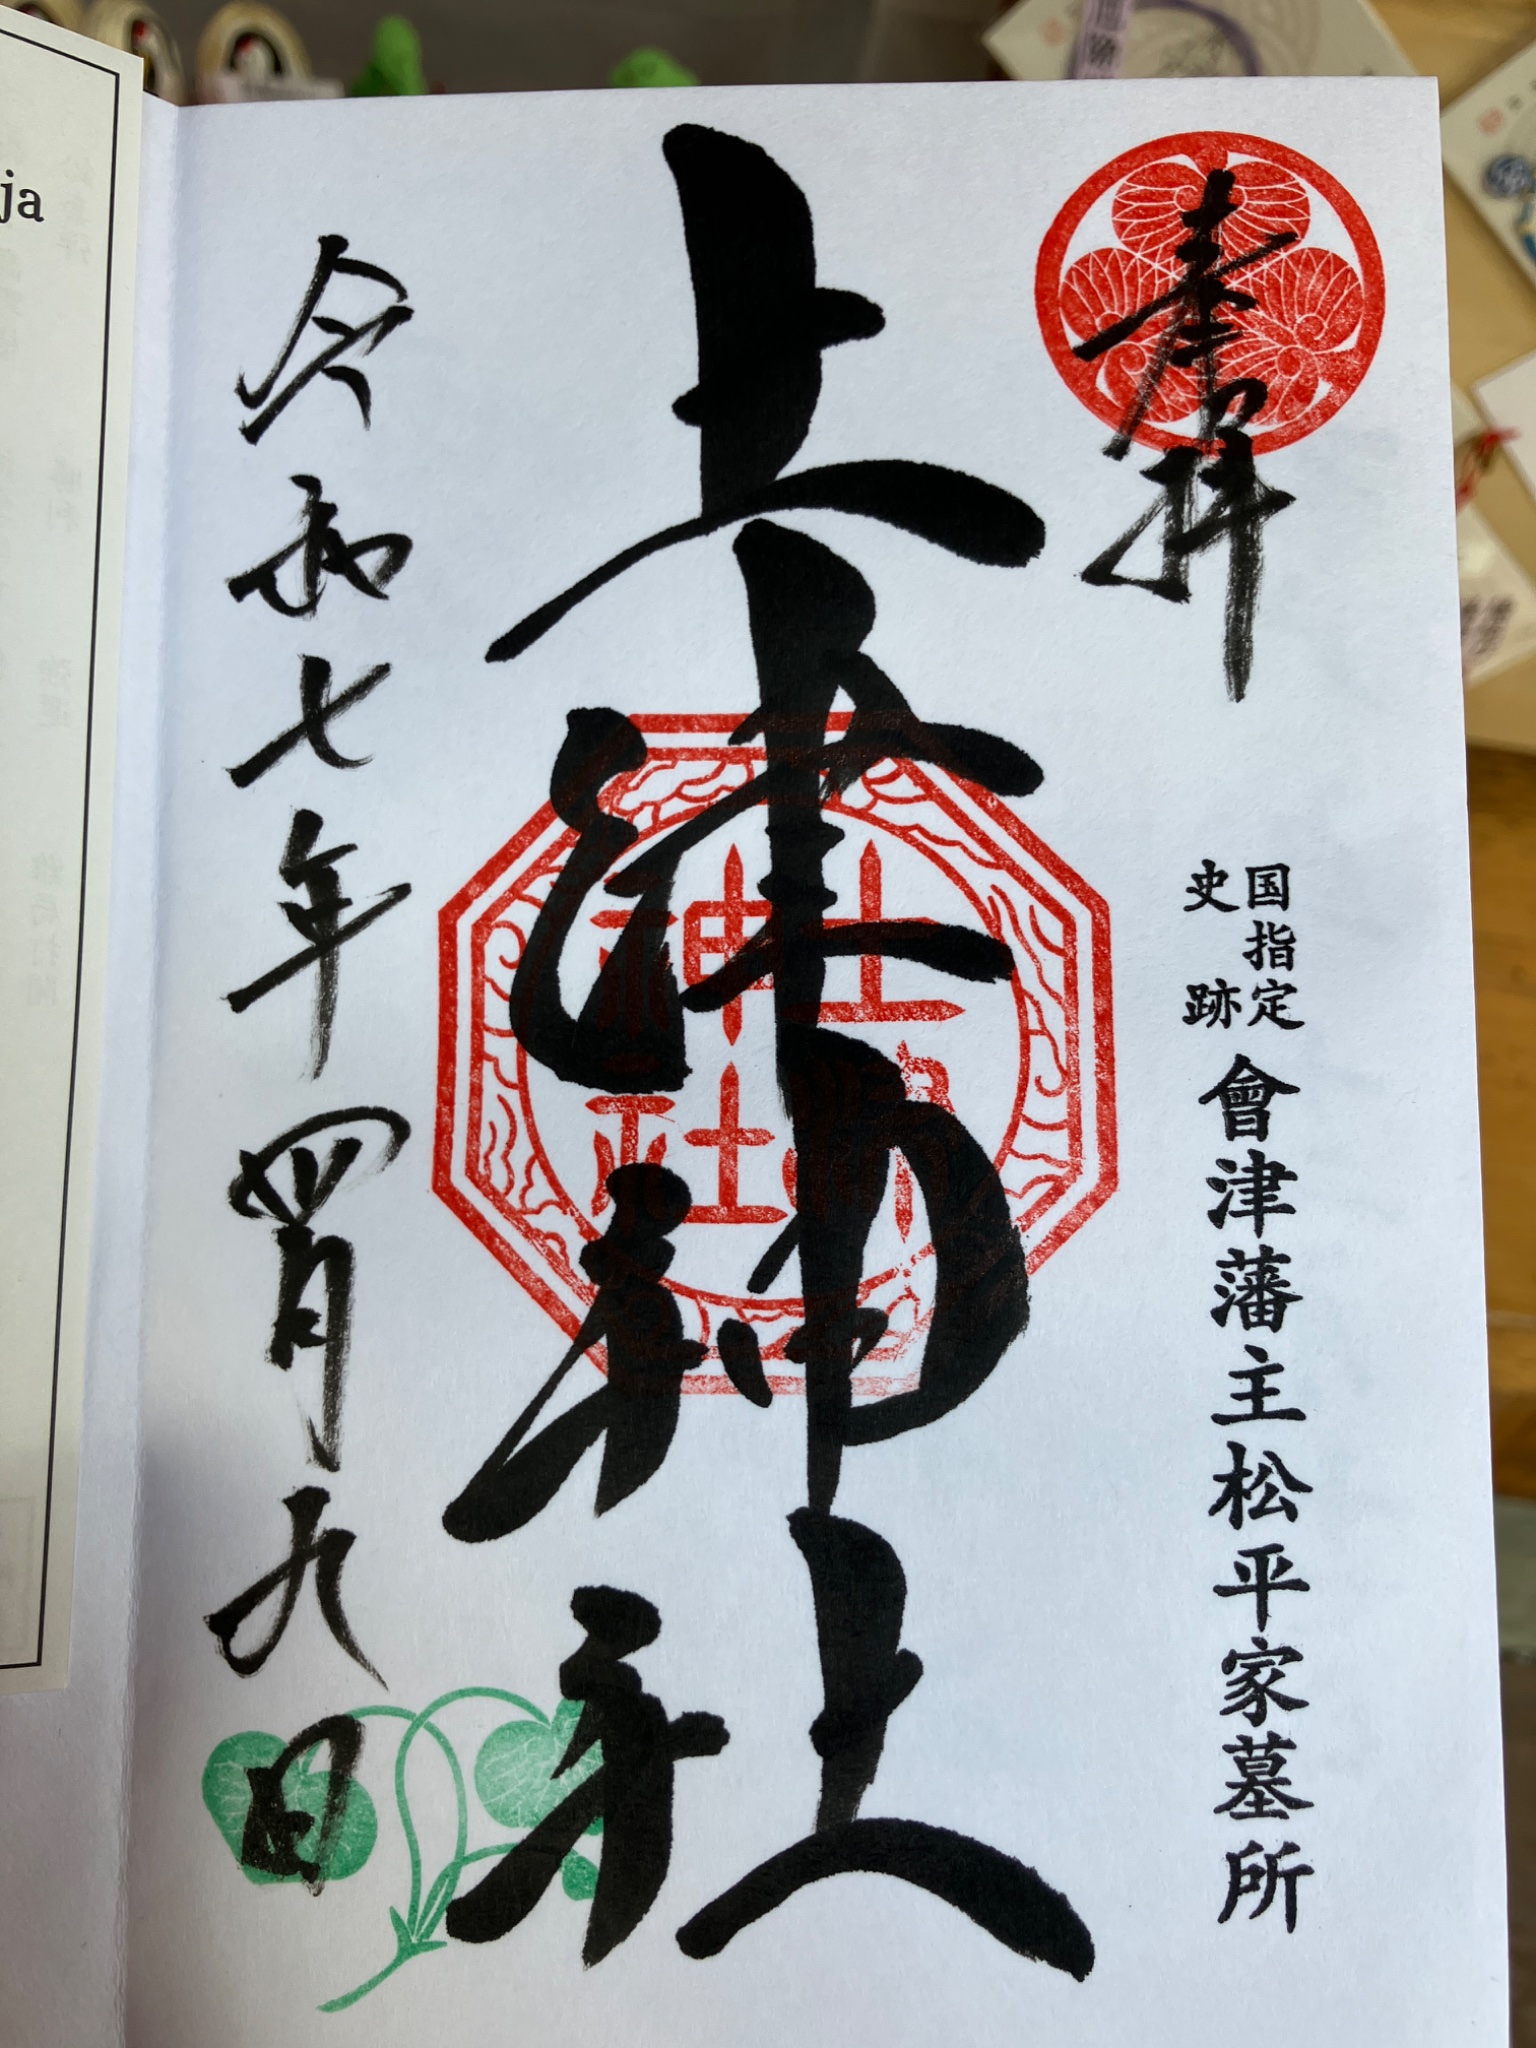 奉拝
国指定
史跡
會津藩主松平家墓所
土津神社
土津
神社
令和七年四月九日
ja